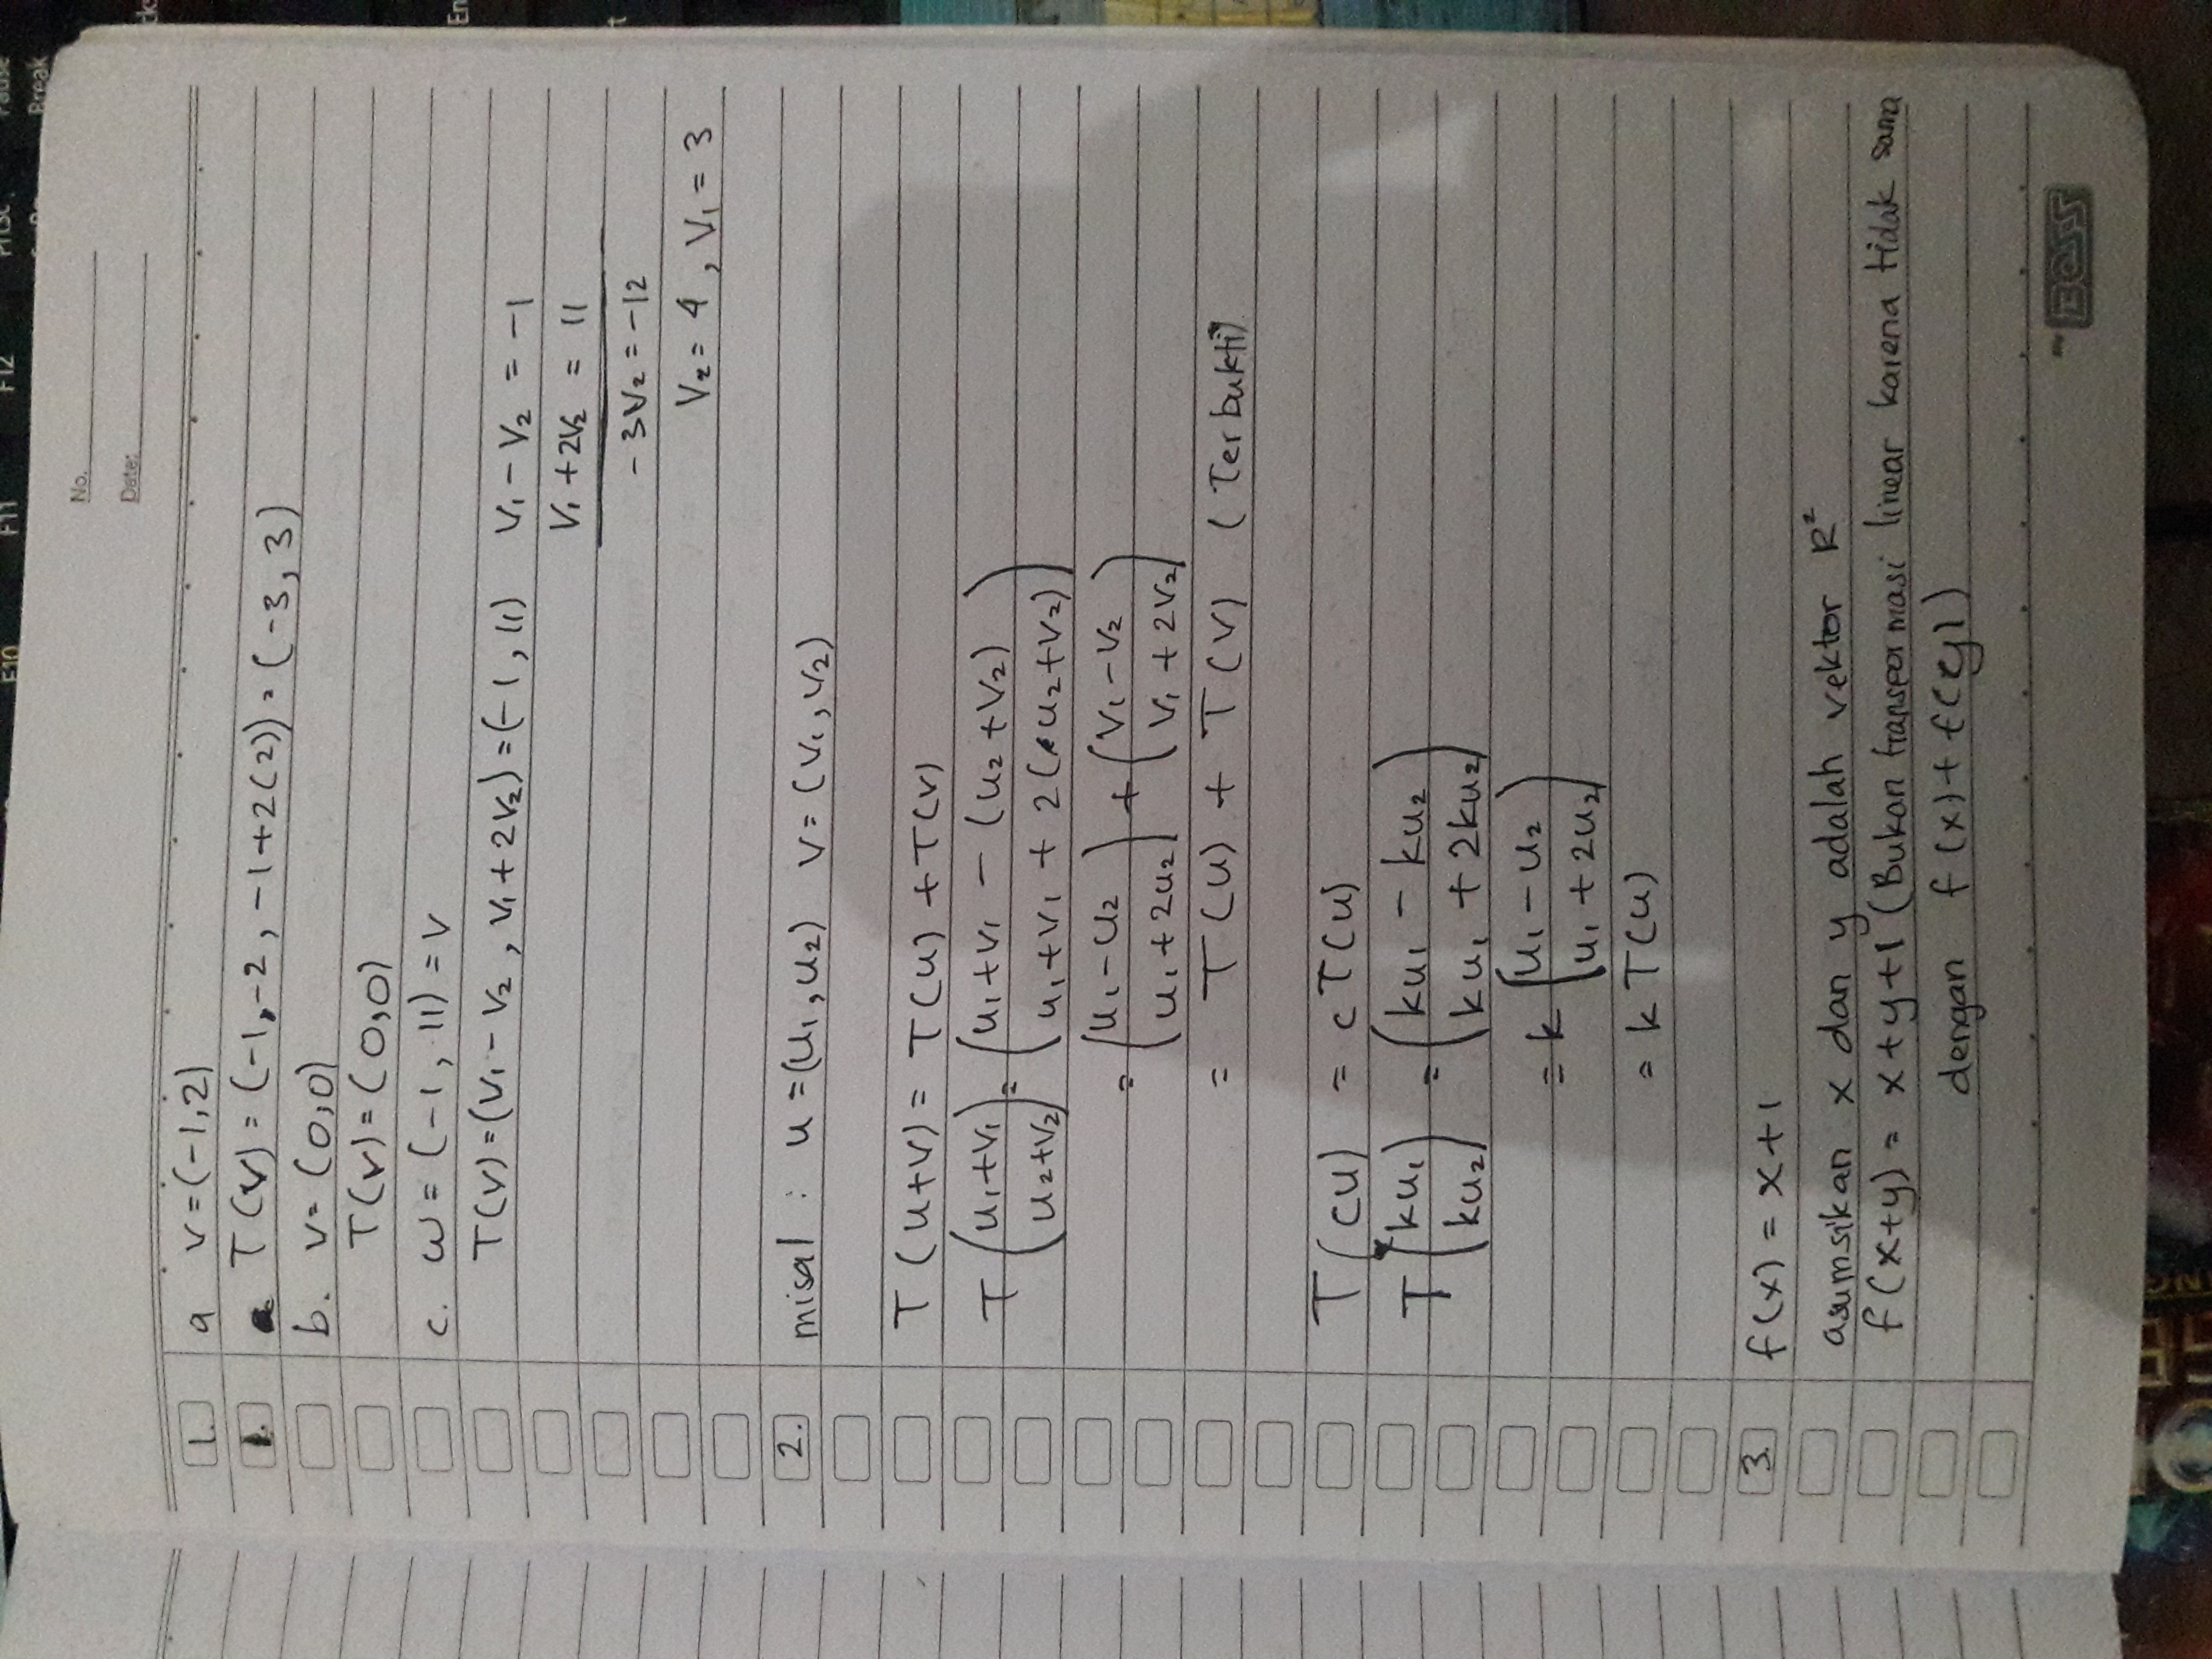 F10 F11 F12 PrtSc Pause
Break
No.
Date:
1. a v=(-1,2)
1. a T(v) = (-1,-2, -1+2(2)) = (-3, 3)
b. v= (0,0)
T(v)=(0,0)
c. w = (-1, 11) = v
T(v)=(v₁-v₂, v₁+2v₂)=(-1, 11) v₁-v₂ = -1
v₁+2v₂ = 11
-3v₂ = -12
v₂ = 4, v₁ = 3
2. misal : u=(u₁,u₂) v=(v₁,v₂)
T(u+v) = T(u) + T(v)
T (u₁+v₁) = (u₁+v₁ - (u₂+v₂)
u₂+v₂) u₁+v₁ + 2(u₂+v₂))
= (u₁-u₂) + (v₁-v₂)
u₁+2u₂ v₁+2v₂
= T(u) + T(v) (Terbukti)
T(cu) = cT(u)
T (ku₁) = (ku₁ - ku₂)
ku₂ ku₁ + 2ku₂
= k (u₁-u₂)
u₁+2u₂
= k T(u)
3. f(x) = x+1
asumsikan x dan y adalah vektor R²
f(x+y) = x+y+1 (Bukan transpormasi linear karena tidak sama
dengan f(x)+f(y))
BOSS